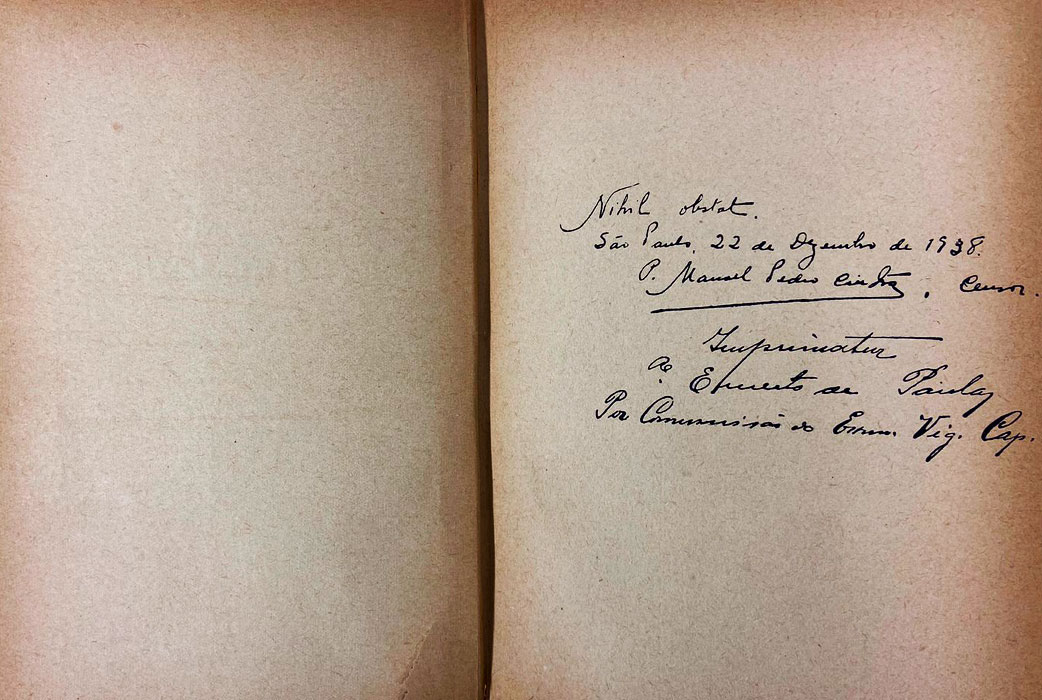 Nihil obstat.
São Paulo, 22 de Dezembro de 1938.
P. Manoel Pedro Cintra, Censor.
Imprimatur
Ernesto de Paula
Por Commissão do Exmo. Vig. Cap.